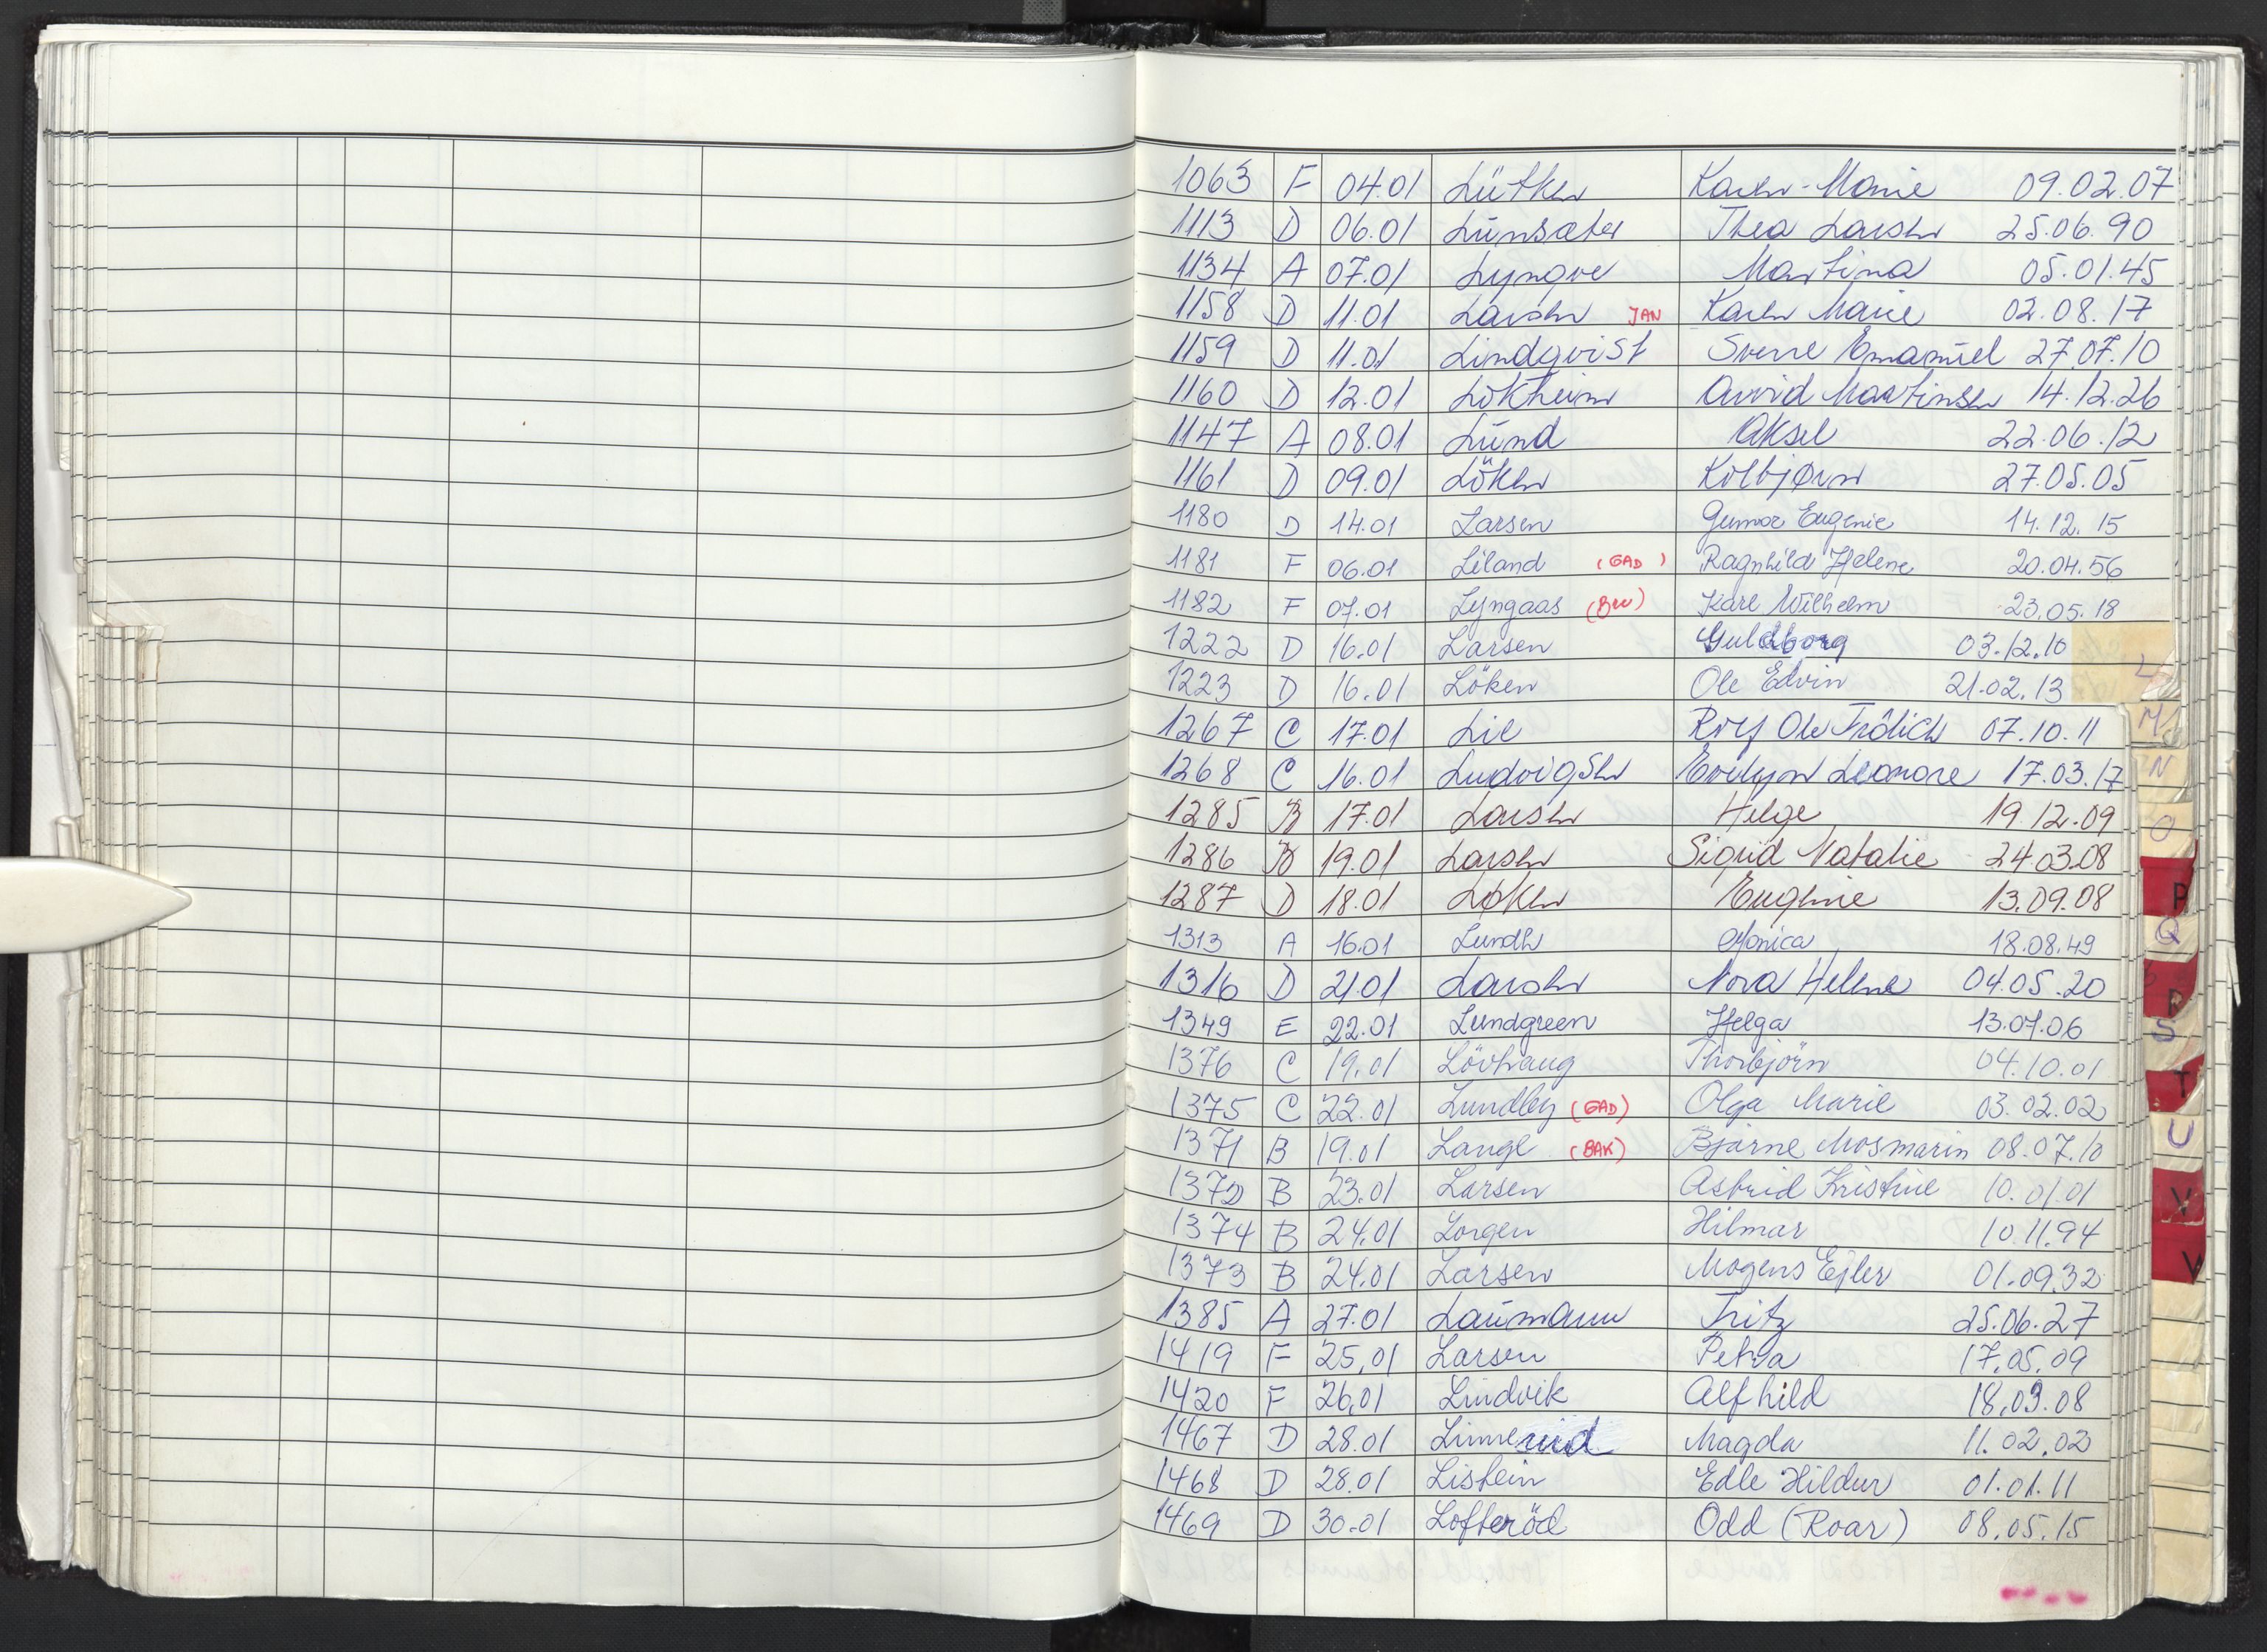 1063 F 04.01 Lütken Karen-Marie 09.02.07
1113 D 06.01 Lunsæter Thea Larsen 25.06.90
1134 A 07.01 Lyngve Martina 05.01.45
1158 D 11.01 Larsen JAN Karen Marie 02.08.17
1159 D 11.01 Lindqvist Sverre Emanuel 27.07.10
1160 D 12.01 Løkheim Arvid Martinsen 14.12.26
1147 A 08.01 Lund Aksel 22.06.12
1161 D 09.01 Löken Kolbjørn 27.05.05
1180 D 14.01 Larsen Gunvor Eugenie 14.12.15
1181 F 06.01 Liland (GAD) Ragnhild Helene 20.04.56
1182 F 07.01 Lyngaas Karl Wilhelm 23.05.18
1222 D 16.01 Larsen Guldborg 03.12.10
1223 D 16.01 Löken Ole Edvin 21.02.13
1267 C 17.01 Lie Rolf Ole Frölich 07.10.11
1268 C 16.01 Ludvigsen Evelyn Leonore 17.03.17
1285 B 17.01 Larsen Helge 19.12.09
1286 B 19.01 Larsen Sigrid Natalie 24.03.08
1287 D 18.01 Løken Eugenie 13.09.08
1313 A 16.01 Lundh Monica 18.08.49
1316 D 21.01 Larsen Nora Helene 04.05.20
1349 E 22.01 Lundgreen Helga 13.07.06
1376 C 19.01 Lövhaug Thorbjörn 04.10.01
1375 C 22.01 Lundby (GAD) Olga Marie 03.02.02
1371 B 19.01 Lange (BAK) Bjarne Mosmarin 08.07.10
1372 B 23.01 Larsen Astrid Kristine 10.01.01
1374 B 24.01 Lorgen Hilmar 10.11.94
1373 B 24.01 Larsen Mogens Ejler 01.09.32
1385 A 27.01 Laumann Fritz 25.06.27
1419 F 25.01 Larsen Petra 17.05.09
1420 F 26.01 Lindvik Alfhild 18.09.08
1467 D 28.01 Linnerud Magda 11.02.02
1468 D 28.01 Listein Edle Hildur 01.01.11
1469 D 30.01 Lofteröd Odd (Roar) 08.05.15
L
M
N
O
P
Q
R
S
T
U
V